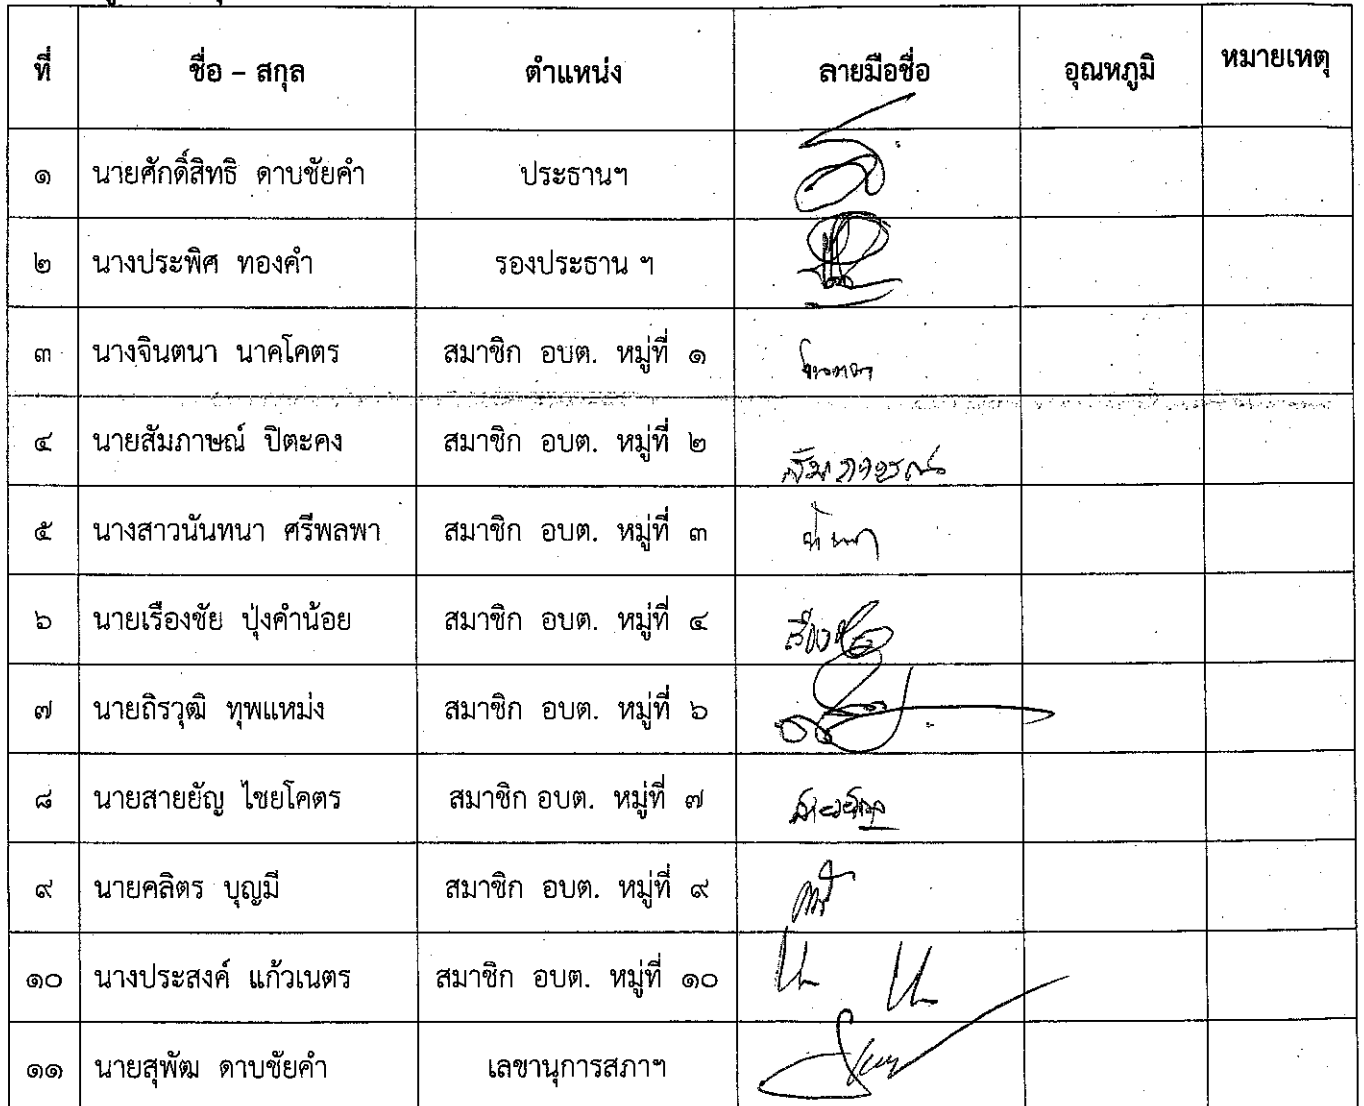 ที่ ชื่อ – สกุล ตำแหน่ง ลายมือชื่อ อุณหภูมิ หมายเหตุ
๑ นายศักดิ์สิทธิ ดาบชัยคำ ประธานฯ
๒ นางประพิศ ทองคำ รองประธาน ฯ
๓ นางจินตนา นาคโคตร สมาชิก อบต. หมู่ที่ ๑
๔ นายสัมภาษณ์ ปิตะคง สมาชิก อบต. หมู่ที่ ๒
๕ นางสาวนันทนา ศรีพลพา สมาชิก อบต. หมู่ที่ ๓
๖ นายเรืองชัย ปุ่งคำน้อย สมาชิก อบต. หมู่ที่ ๔
๗ นายถิรวุฒิ ทุพแหม่ง สมาชิก อบต. หมู่ที่ ๖
๘ นายสายยัญ ไชยโคตร สมาชิก อบต. หมู่ที่ ๗
๙ นายคลิตร บุญมี สมาชิก อบต. หมู่ที่ ๙
๑๐ นางประสงค์ แก้วเนตร สมาชิก อบต. หมู่ที่ ๑๐
๑๑ นายสุพัฒ ดาบชัยคำ เลขานุการสภาฯ